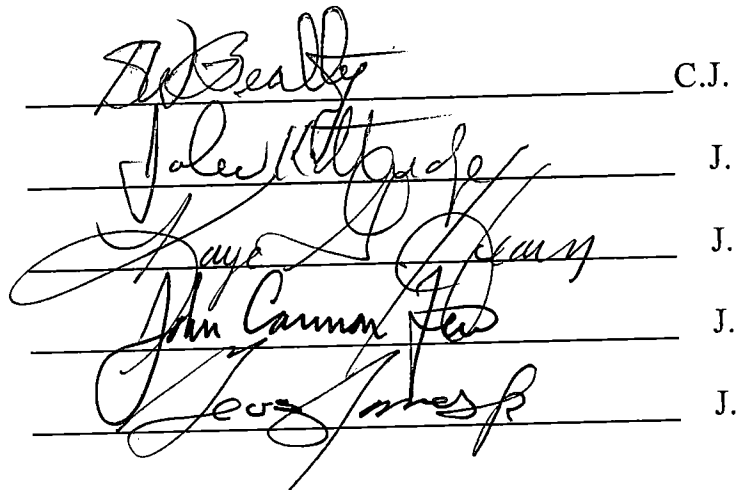 Beatty C.J.
John Kittredge J.
Kaye Hearn J.
John Cannon Few J.
James Jr J.